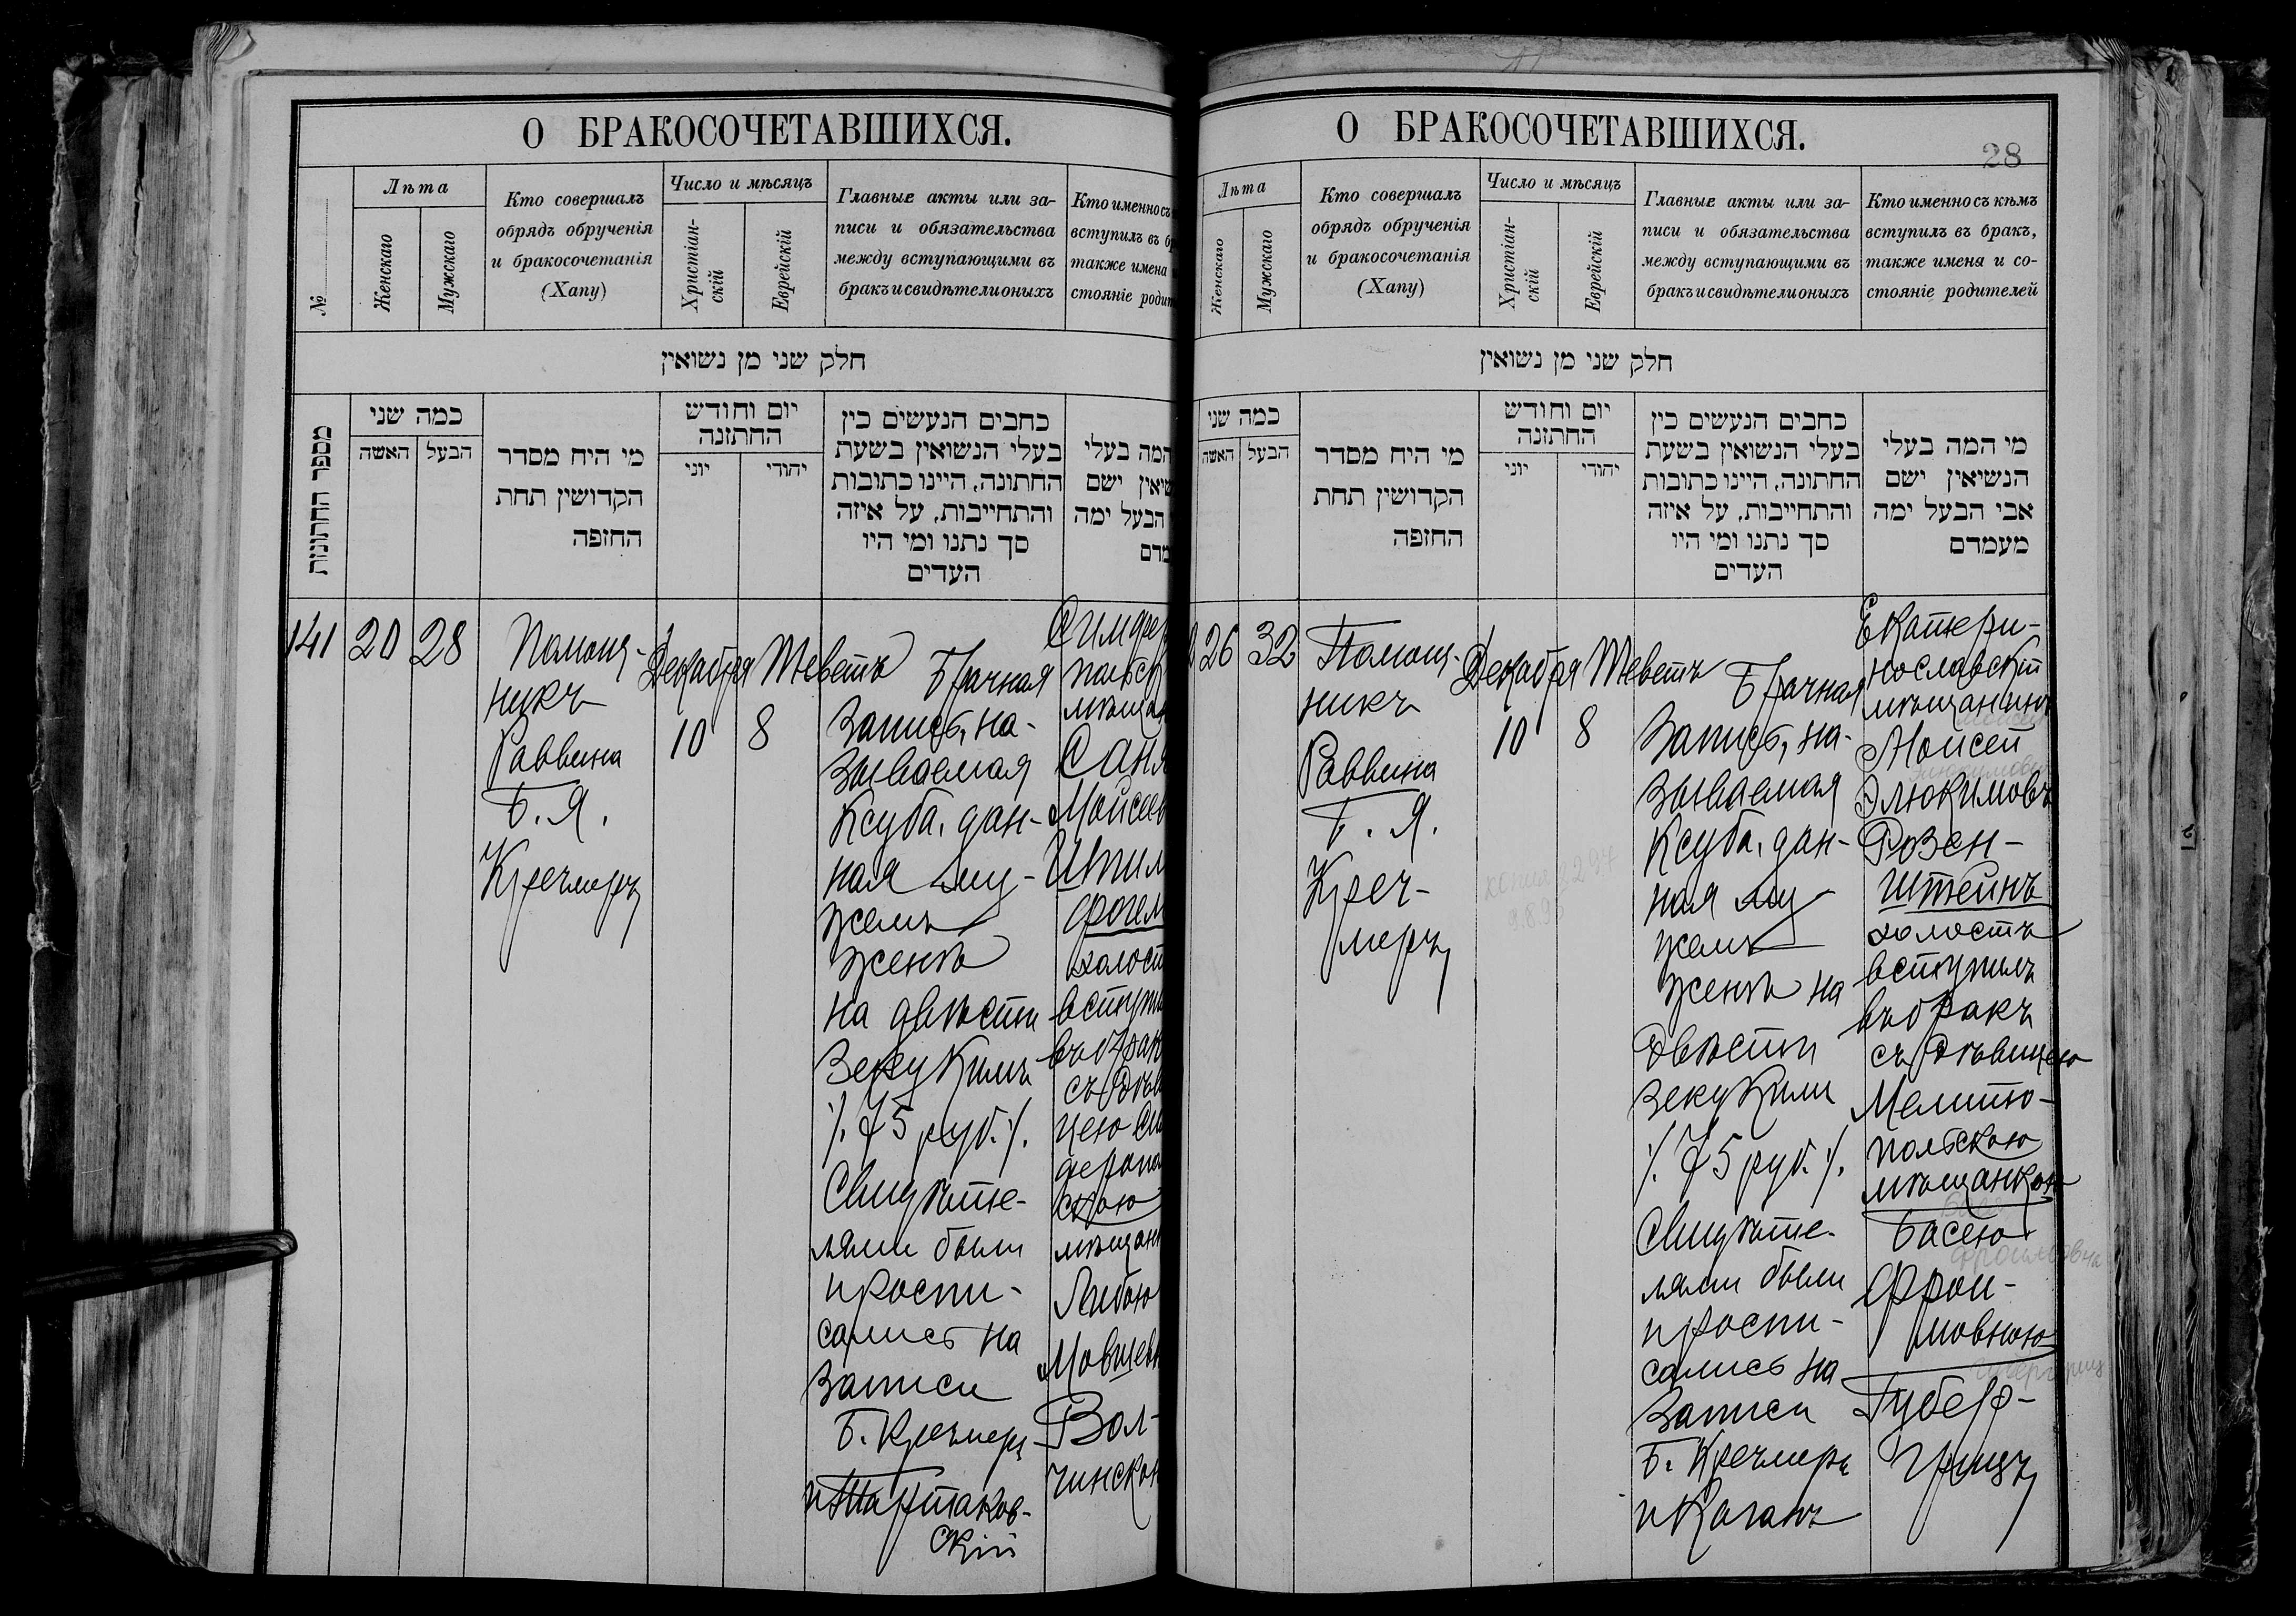 О БРАКОСОЧЕТАВШИХСЯ.
№
Лѣта
Женскаго
Мужскаго
Кто совершалъ
обрядъ обрученія
и бракосочетанія
(Хапу)
Число и мѣсяцъ
Христіан-
скій
Еврейскій
Главные акты или за-
писи и обязательства
между вступающими въ
бракъ и свидѣтели оныхъ
Кто именно съ
вступилъ въ б
также имена
стояніе родит
חלק שני מן נשואין
מספר החתונות
כמה שני
האשה
הבעל
מי היח מסדר
הקדושין תחת
החזפה
יום וחודש
החתזנה
יוני
יהודי
כחבים הנעשים כין
בעלי הנשואין בשעת
החתונה, היינו כתובות
והתחייבות, על איזה
סך נתנו ומי היו
העדים
המה בעלי
שיאין ישם
הבעל ימה
מדם
141
20
28
Помощ-
никъ
Раввина
Б. Я.
Кречмеръ
Декабря
10
Теветъ
8
Брачная
Запись, на-
зываемая
Ксуба, дан-
ная му-
жемъ
женѣ
на двѣсти
Зекукимъ
/. 75 руб. /.
Свидѣте-
лями были
и роспи-
сались на
Записи
Б. Кречмеръ
и Тартаков-
скій
Симфер
польск
мѣщан
Саня
Мойсеев
Шпил
фогел
холост
вступи
въ брак
съ Дѣв
цею Си
феропол
скою
мѣщанк
Либою
Мовшевн
Вол-
чинскою
О БРАКОСОЧЕТАВШИХСЯ.
28
Лѣта
Женскаго
Мужскаго
Кто совершалъ
обрядъ обрученія
и бракосочетанія
(Хапу)
Число и мѣсяцъ
Христіан-
скій
Еврейскій
Главные акты или за-
писи и обязательства
между вступающими въ
бракъ и свидѣтели оныхъ
Кто именно съ кѣмъ
вступилъ въ бракъ,
также имена и со-
стояніе родителей
חלק שני מן נשואין
כמה שני
האשה
הבעל
מי היח מסדר
הקדושין תחת
החזפה
יום וחודש
החתזנה
יוני
יהודי
כחבים הנעשים כין
בעלי הנשואין בשעת
החתונה, היינו כתובות
והתחייבות, על איזה
סך נתנו ומי היו
העדים
מי המה בעלי
הנשיאין ישם
אבי הבעל ימה
מעמדם
26
32
Помощ-
никъ
Раввина
Б. Я.
Креч-
меръ
Декабря
10
Теветъ
8
Брачная
Запись, на-
зываемая
Ксуба, дан-
ная му-
жемъ
женѣ на
Двѣсти
зекуким
/. 75 руб. /.
Свидѣте-
лями были
и роспи-
сались на
Записи
Б. Кречмеръ
и Каганъ
Екатери-
нославскій
мѣщанинъ
Моисей
Элюкимовъ
Розен-
штейнъ
холостъ
вступилъ
въ бракъ
съ Дѣвицею
Мелито-
польскою
мѣщанкою
Басею
Фрои-
мовною
Губерг-
рицъ